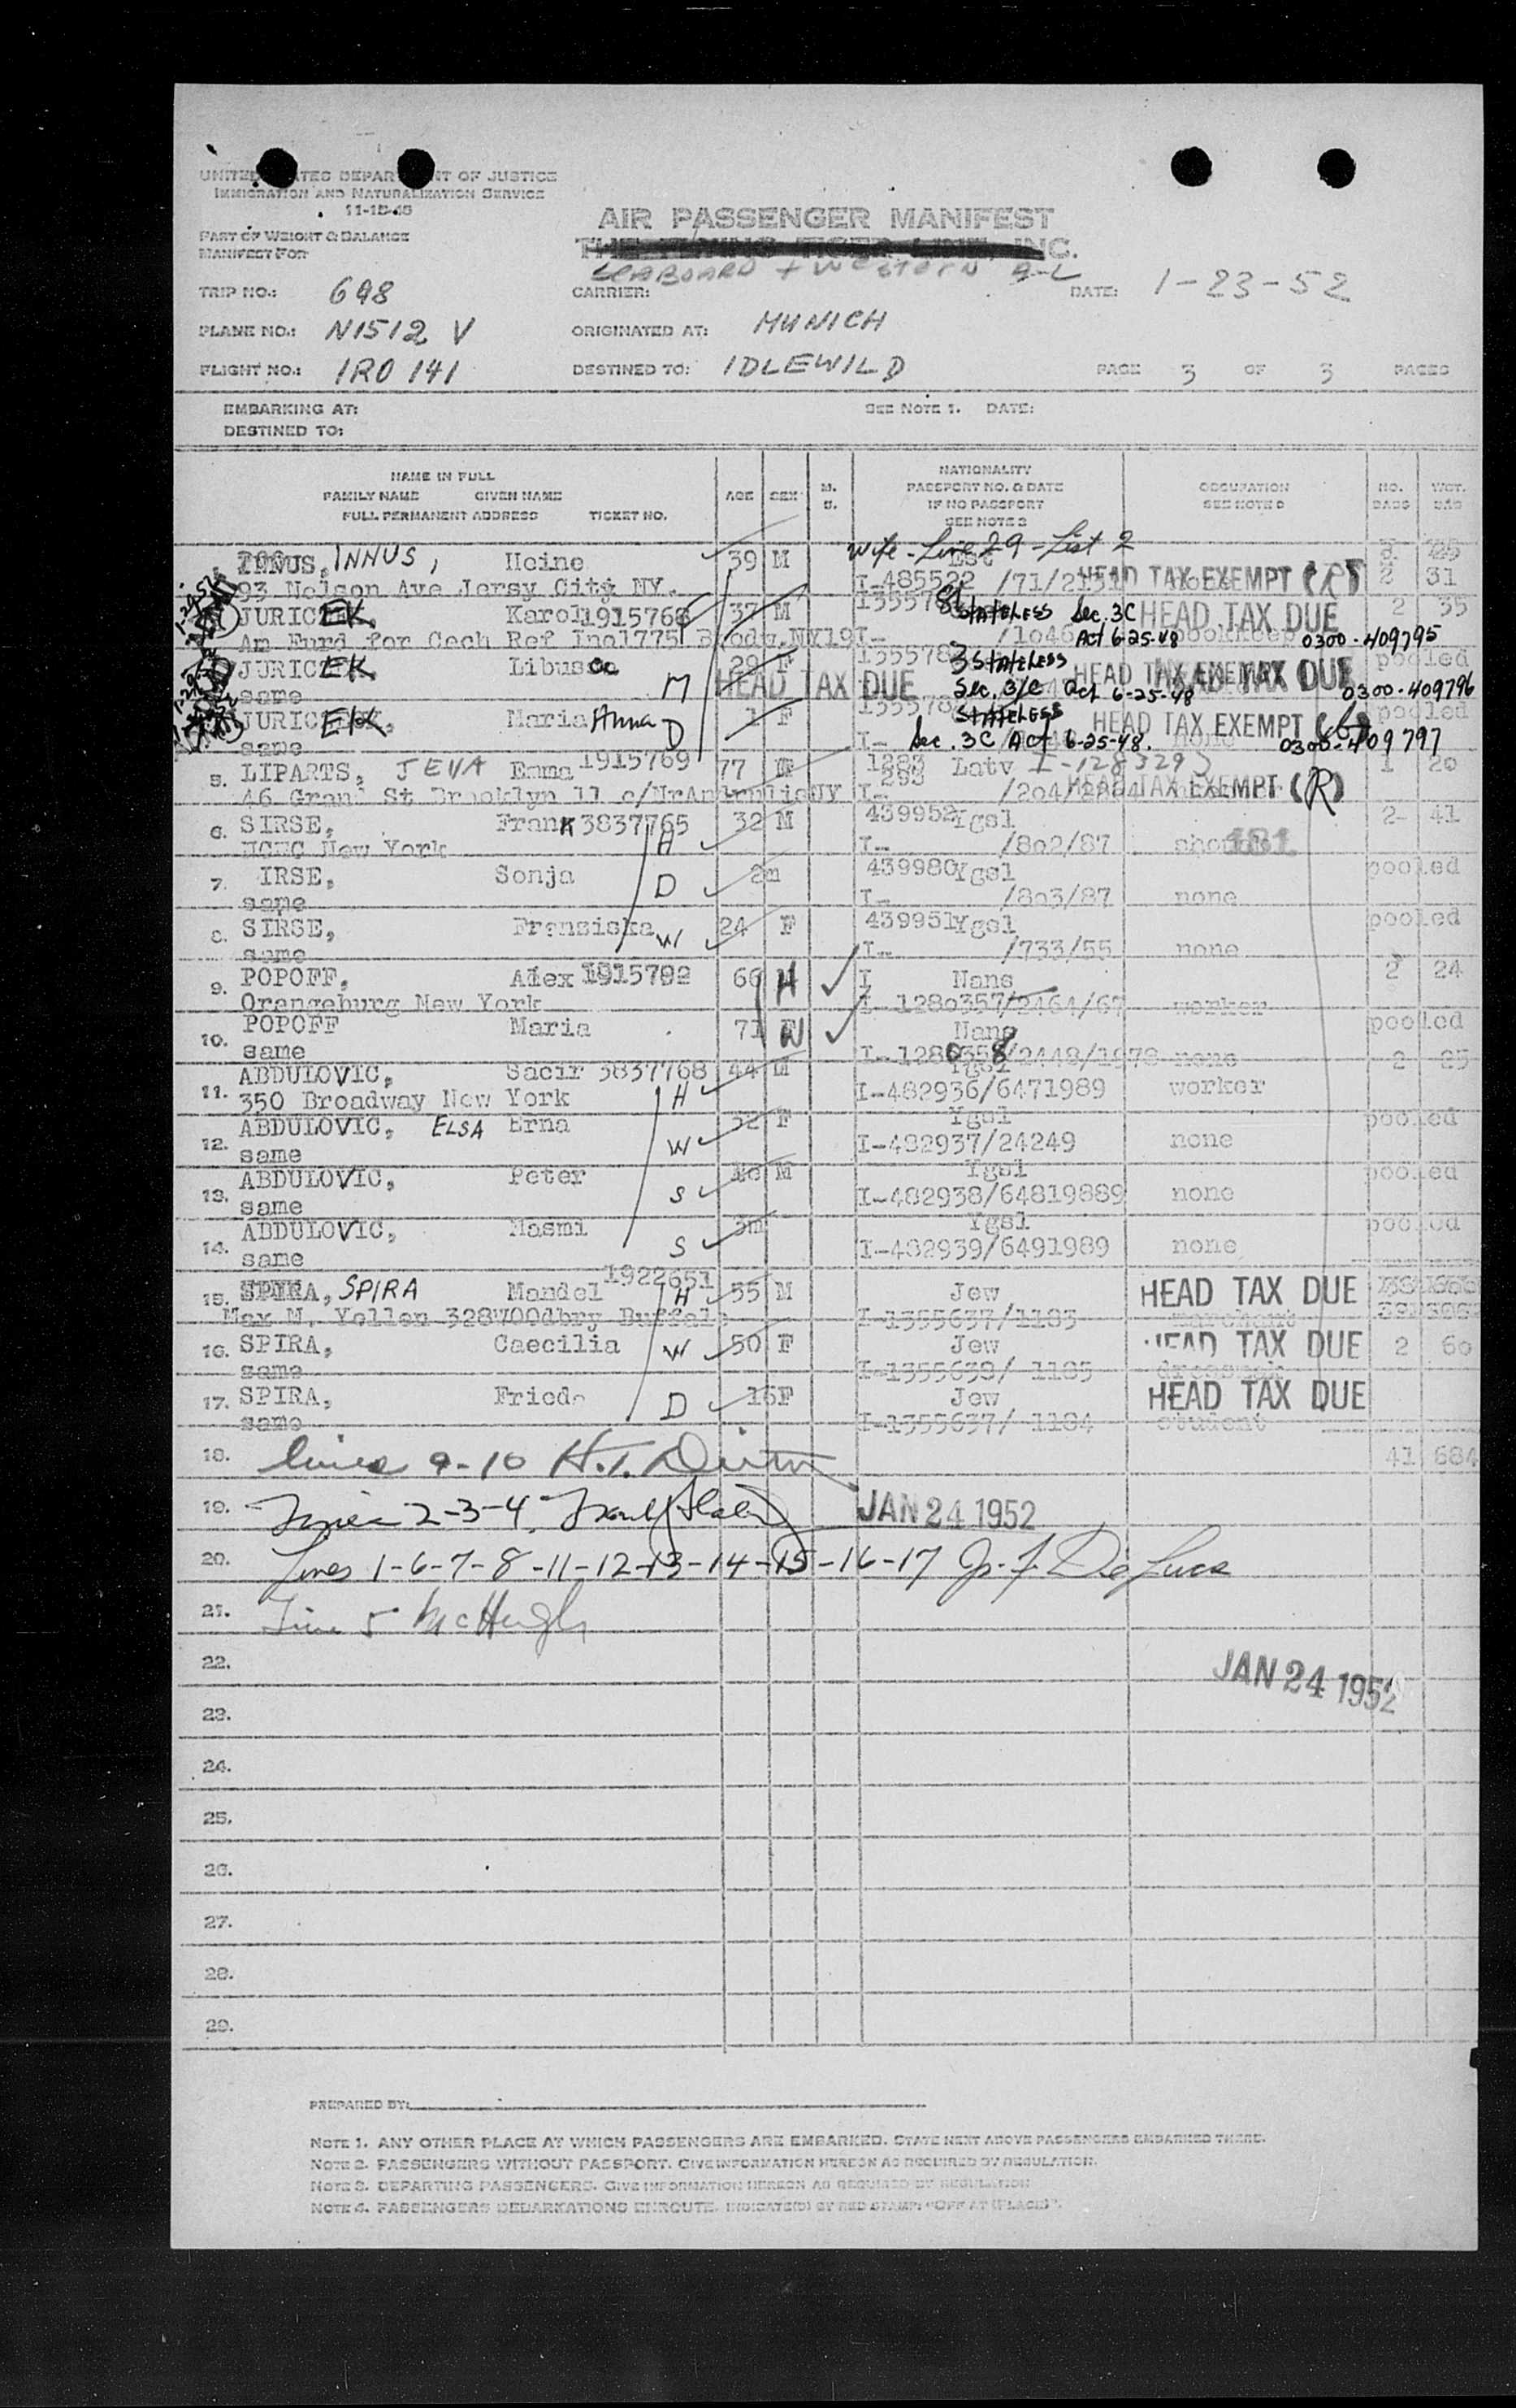 UNITED STATES DEPARTMENT OF JUSTICE
IMMIGRATION AND NATURALIZATION SERVICE
11-15-48
AIR PASSENGER MANIFEST
PART OF WEIGHT & BALANCE
THE FLYING TIGER LINE, INC.
MANIFEST FOR
SEABOARD + WESTERN A-L
TRIP NO.: 698 CARRIER: DATE: 1-23-52
PLANE NO.: N1512 V ORIGINATED AT: MUNICH
FLIGHT NO.: IRO 141 DESTINED TO: IDLEWILD PAGE 3 OF 3 PAGES
EMBARKING AT: SEE NOTE 1. DATE:
DESTINED TO:
NAME IN FULL NATIONALITY
FAMILY NAME GIVEN NAME AGE SEX M. S. PASSPORT NO. & DATE OCCUPATION NO. WGT.
IF NO PASSPORT SEE NOTE BAGS BAG
FULL PERMANENT ADDRESS TICKET NO. SEE NOTE 2
Wife - Line 29 - List 2
INNUS, INNUS, Heino 39 M Est
93 Nelson Ave Jersy City NY. I-485522 /71/2151 HEAD TAX EXEMPT (R) 2 31
JURICEK, Karol 1915766 37 M STATELESS Sec. 3C HEAD TAX DUE 2 35
Am Fund for Cech Ref Inc1775 Brodw. NY19 I- /1046 Act 6-25-48 bookkeep 0300-409795
JURICEK, Libusca 29 F STATELESS HEAD TAX EXEMPT HEAD TAX DUE pooled
same M HEAD TAX DUE Sec. 3/C Act 6-25-48 0300-409796
JURICEK, Maria Anna D 1 F STATELESS HEAD TAX EXEMPT pooled
same I- Sec. 3C Act 6-25-48. none 0300-409797
5. LIPARTS, JEVA Emma 1915769 77 F 1283 Latv I-1283293 1 20
46 Grand St Brooklyn 11 I- HEAD TAX EXEMPT (R)
6. SIRSE, Frank 3837765 32 M 439952 Ygsl 2- 41
NCWC New York H I- /802/87 181
7. IRSE, Sonja 2m 439980 Ygsl pooled
same D I- /803/87 none
8. SIRSE, Fransiska 24 F 439951 Ygsl pooled
same W I- /733/55 none
9. POPOFF, Alex 1915792 66 H I Nans 2 24
Orangeburg New York I-1280357/2464/67 worker
10. POPOFF Maria 71 W Nans pooled
same I-1280358/2448/1978 none
11. ABDULOVIC, Sacir 3837768 44 M Ygsl 2 25
350 Broadway New York H I-482936/6471989 worker
12. ABDULOVIC, ELSA Erna 32 F Ygsl pooled
same W I-482937/24249 none
13. ABDULOVIC, Peter M Ygsl pooled
same S I-482938/64819889 none
14. ABDULOVIC, Nasmi 3m Ygsl pooled
same S I-482939/6491989 none
15. SPIRA, SPIRA Mandel 1922651 H 55 M Jew HEAD TAX DUE
Max M. Yellen 328WOOdbry Buffalo I-1355637/1183 merchant
16. SPIRA, Caecilia W 50 F Jew HEAD TAX DUE 2 60
same I-1355638/ 1185 dressmak
17. SPIRA, Frieda D 16 F Jew HEAD TAX DUE
same I-1355637/ 1184 student
18. Lines 9-10 H.T. 41 684
19. Lines 2-3-4, JAN 24 1952
20. Lines 1-6-7-8-11-12-13-14-15-16-17 J. F. De Luca
21. Line 5 McHugh
22. JAN 24 1952
23.
24.
25.
26.
27.
28.
29.
PREPARED BY:
NOTE 1. ANY OTHER PLACE AT WHICH PASSENGERS ARE EMBARKED. STATE NEXT ABOVE PASSENGERS EMBARKED THERE.
NOTE 2. PASSENGERS WITHOUT PASSPORT. GIVE INFORMATION HEREON AS REQUIRED BY REGULATION.
NOTE 3. DEPARTING PASSENGERS. GIVE INFORMATION HEREON AS REQUIRED BY REGULATION
NOTE 4. PASSENGERS DEBARKATIONS ENROUTE. INDICATE(D) BY RED STAMP: "OFF AT (PLACE)".